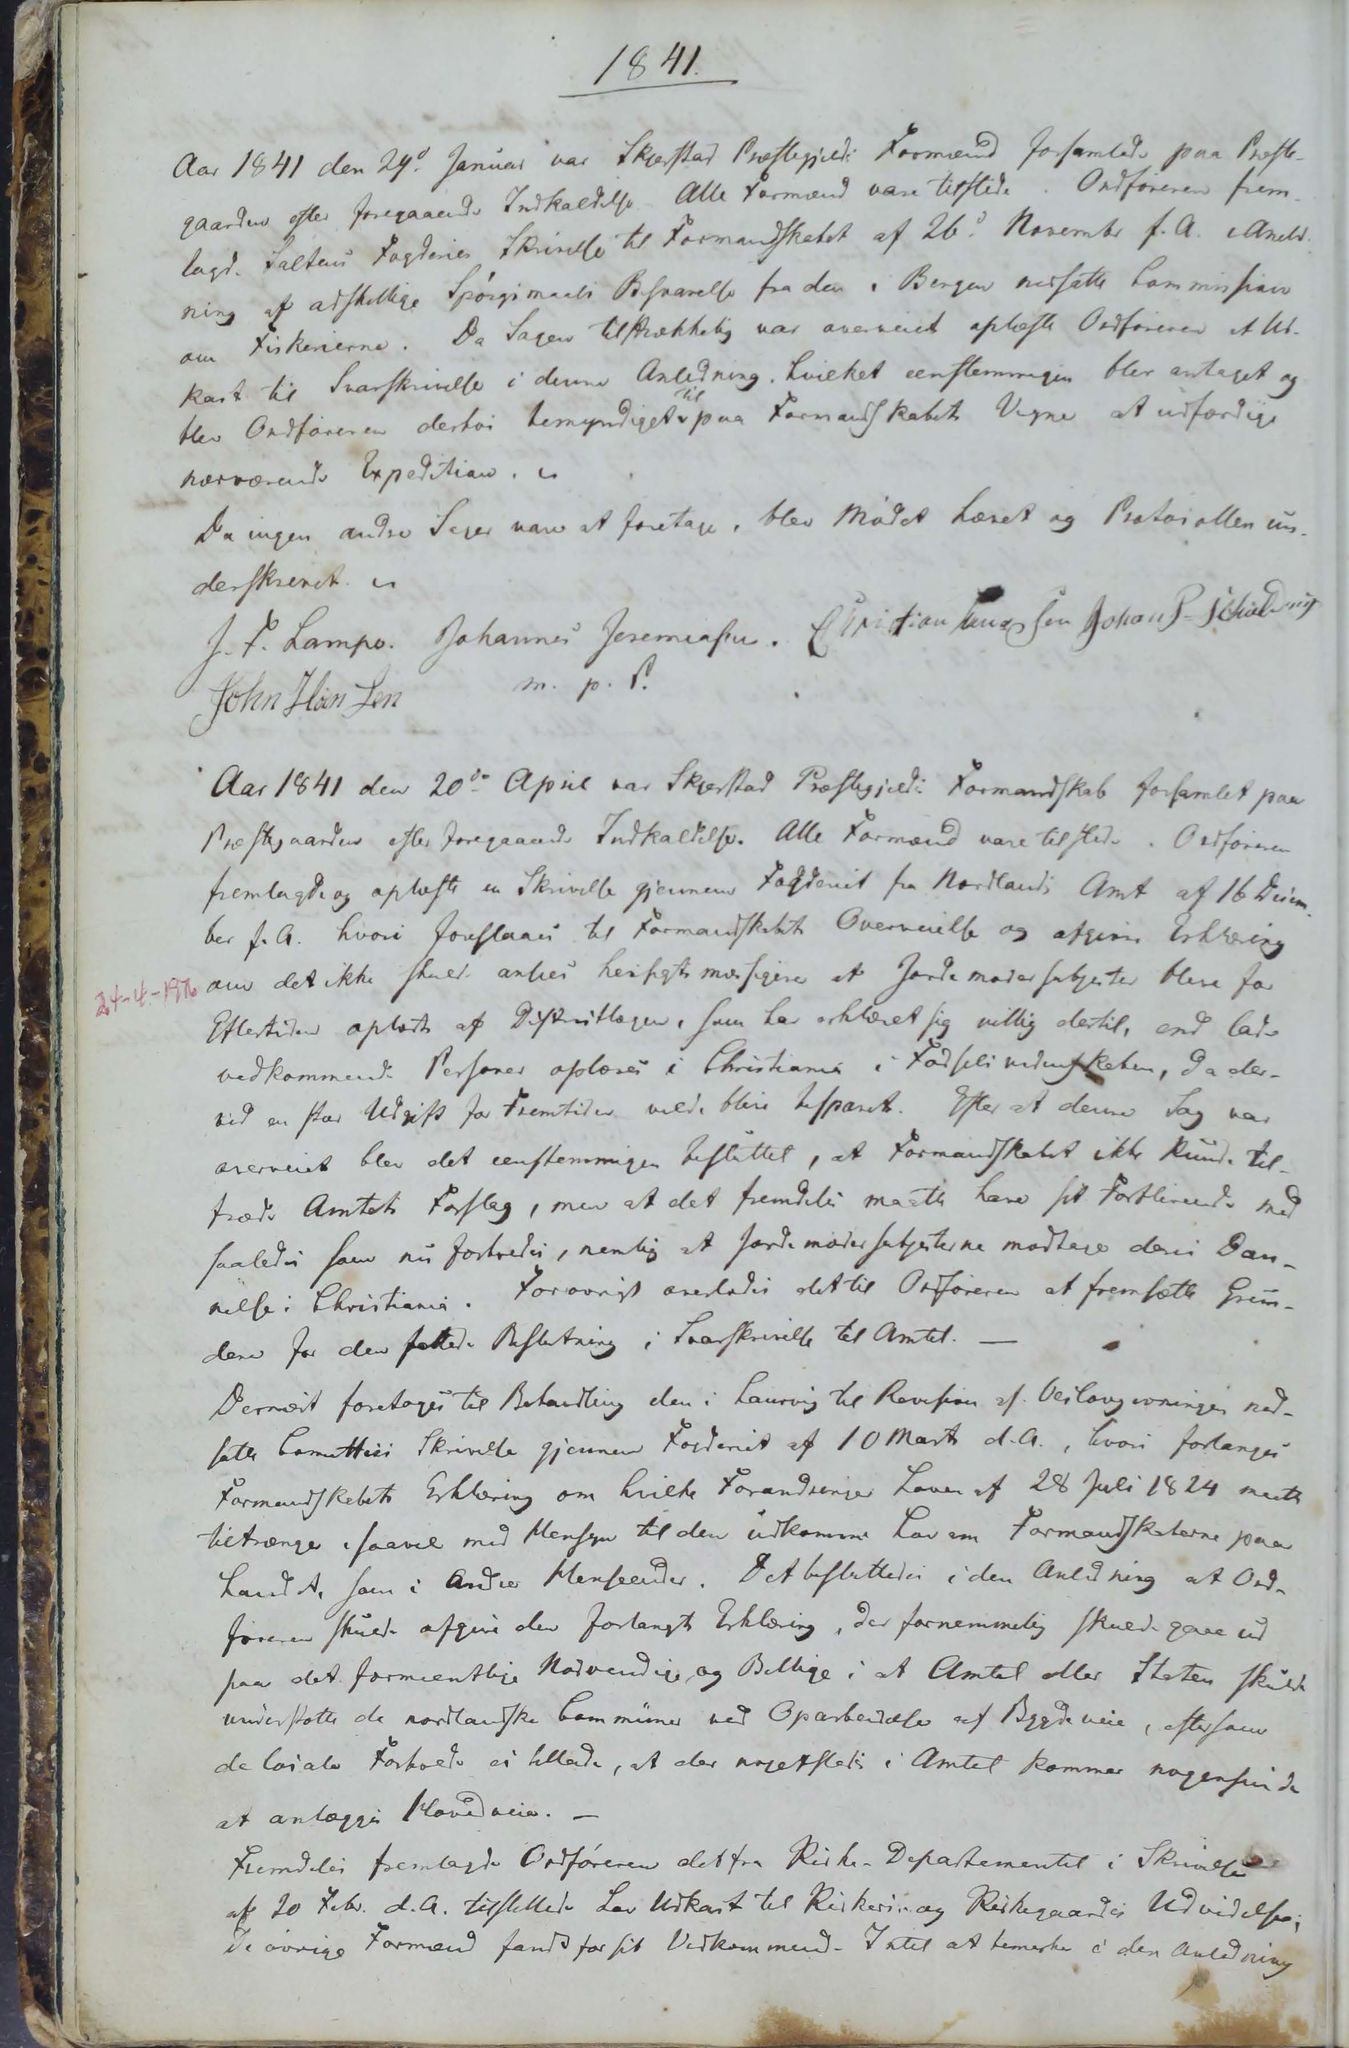 1841.
Aar 1841 den 29d. Januar var Skjerstad Præstegjelds Formænd forsamlede paa Præste-
gaarden efter foregaaende Indkaldelse. Alle Formænd vare tilstede. Ordføreren frem-
lagde Saltens Fogderies Skrivelse til Formandskabet af 26d. November f. A. i Anled-
ning af adskillige Spørgsmaals Besvarelse fra den i Bergen nedsatte Commission
om Fiskerierne. Da Sagen tilstrækkelig var overveiet oplæste Ordføreren et Ud-
kast til Svarskrivelse i denne Anledning, hvilket eenstemmigen blev antaget og
blev Ordføreren derhos bemyndiget til paa Formandskabets Vegne at udfærdige
nærværende Expedition.
Da ingen andre Sager vare at foretage, blev Mødet hævet og Protocollen un-
derskrevet.
J. F. Lampe. Johannes Jeremiasen. Christian Johan P.
John Han Sen m. p. P.
Aar 1841 den 20de April var Skjerstad Præstegjelds Formandskab forsamlet paa
Præstegaarden efter foregaaende Indkaldelse. Alle Formænd vare tilstede. Ordføreren
fremlagde og oplæste en Skrivelse gjennem Fogderiet fra Nordlands Amt af 16 Decem-
ber f. A. hvori foreslaaes til Formandskabets Overveielse og afgivne Erklæring
om det ikke skulde ansees hensigtsmæssigere at Jordemodersubjecter bleve for
Eftertiden oplærte af Districtlægen, som har erklæret sig villig dertil, end lade
vedkommende Personer oplæres i Christiania i Fødselsvidenskaben, da der-
ved en stor Udgift for Fremtiden vilde blive besparet. Efter at denne Sag var
overveiet blev det eenstemmigen besluttet, at Formandskabet ikke kunde til-
træde Amtets Forslag, men at det fremdeles maatte have sit Forblivende med
saaledes som nu forholdes, nemlig at Jordemodersubjecterne modtage deres Dan-
nelse i Christiania. Forøvrigt overlodes det til Ordføreren at fremsætte Grun-
dene for den fattede Beslutning i Svarskrivelse til Amtet. —
Dernæst foretoges til Behandling den i Laurvig til Revision af Veilovgivningen ned-
satte Comittees Skrivelse gjennem Fogderiet af 10 Marts d. A., hvori forlanges
Formandskabets Erklæring om hvilke Forandringer Loven af 28 Juli 1824 maatte
tiltrænge, saavel med Hensyn til den udkomne Lov om Formandskaberne paa
Landet, som i andre Henseender. Det besluttedes i den Anledning at Ord-
føreren skulde afgive den forlangte Erklæring, der fornemmelig skulde gaae ud
paa det formeentlige Nødvendige og Billige i at Amtet eller Staten skulde
understøtte de nordlandske Communer ved Oparbeidelse af Bygdeveie, eftersom
de locale Forholde ei tillade, at der nogetsteds i Amtet kommer nogensinde
at anlægges Hovedveie. —
Fremdeles fremlagde Ordføreren det fra Kirke-Departementet i Skrivelse
af 20 Febr. d. A. tilstillede Lov Udkast til Kirkers og Kirkegaardes Udvidelse;
De øvrige Formænd fandt for sit Vedkommende Intet at bemærke i den Anledning